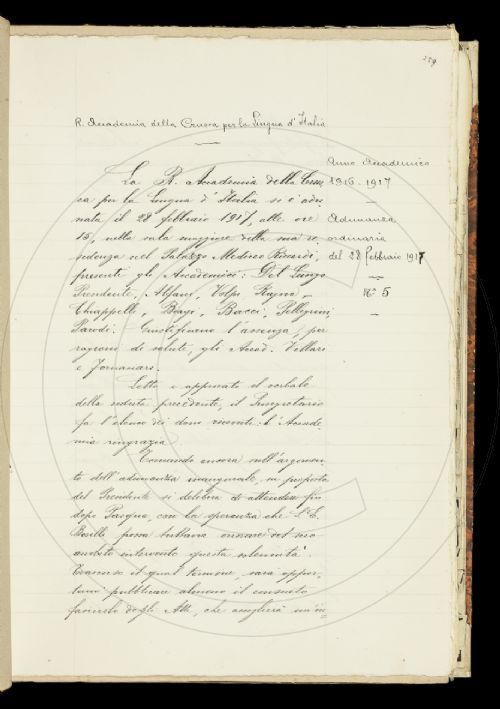 259
R. Accademia della Crusca per la Lingua d'Italia
Anno Accademico
1916-1917
Adunanza
ordinaria
del 28 febbraio 1917
N.° 5
La R. Accademia della Crus
ca per la Lingua d'Italia si è adu
nata il 28 febbraio 1917, alle ore
15, nella sala maggiore della sua re
sidenza nel Palazzo Mediceo Riccardi,
presenti gli Accademici: Del Lungo
Presidente, Alfani, Volpi, Rajna,
Chiappelli, Biagi, Bacci, Pellegrini,
Parodi. Giustificano l'assenza, per
ragioni di salute, gli Accad. Villari
e Tornaman.
Letto e approvato il verbale
della seduta precedente, il Segretario
fa l'elenco dei doni ricevuti: l'Accade
mia ringrazia.
Tornando ancora sull'argomen
to dell'adunanza inaugurale, su proposta
del Presidente si delibera di attendere fin
dopo Pasqua, con la speranza che S. E.
Boselli possa tuttavia onorare del suo
ambito intervento questa solennità.
Trascorso il qual termine, sarà oppor
tuno pubblicare almeno il consueto
fascicolo degli Atti, che accoglierà un'in